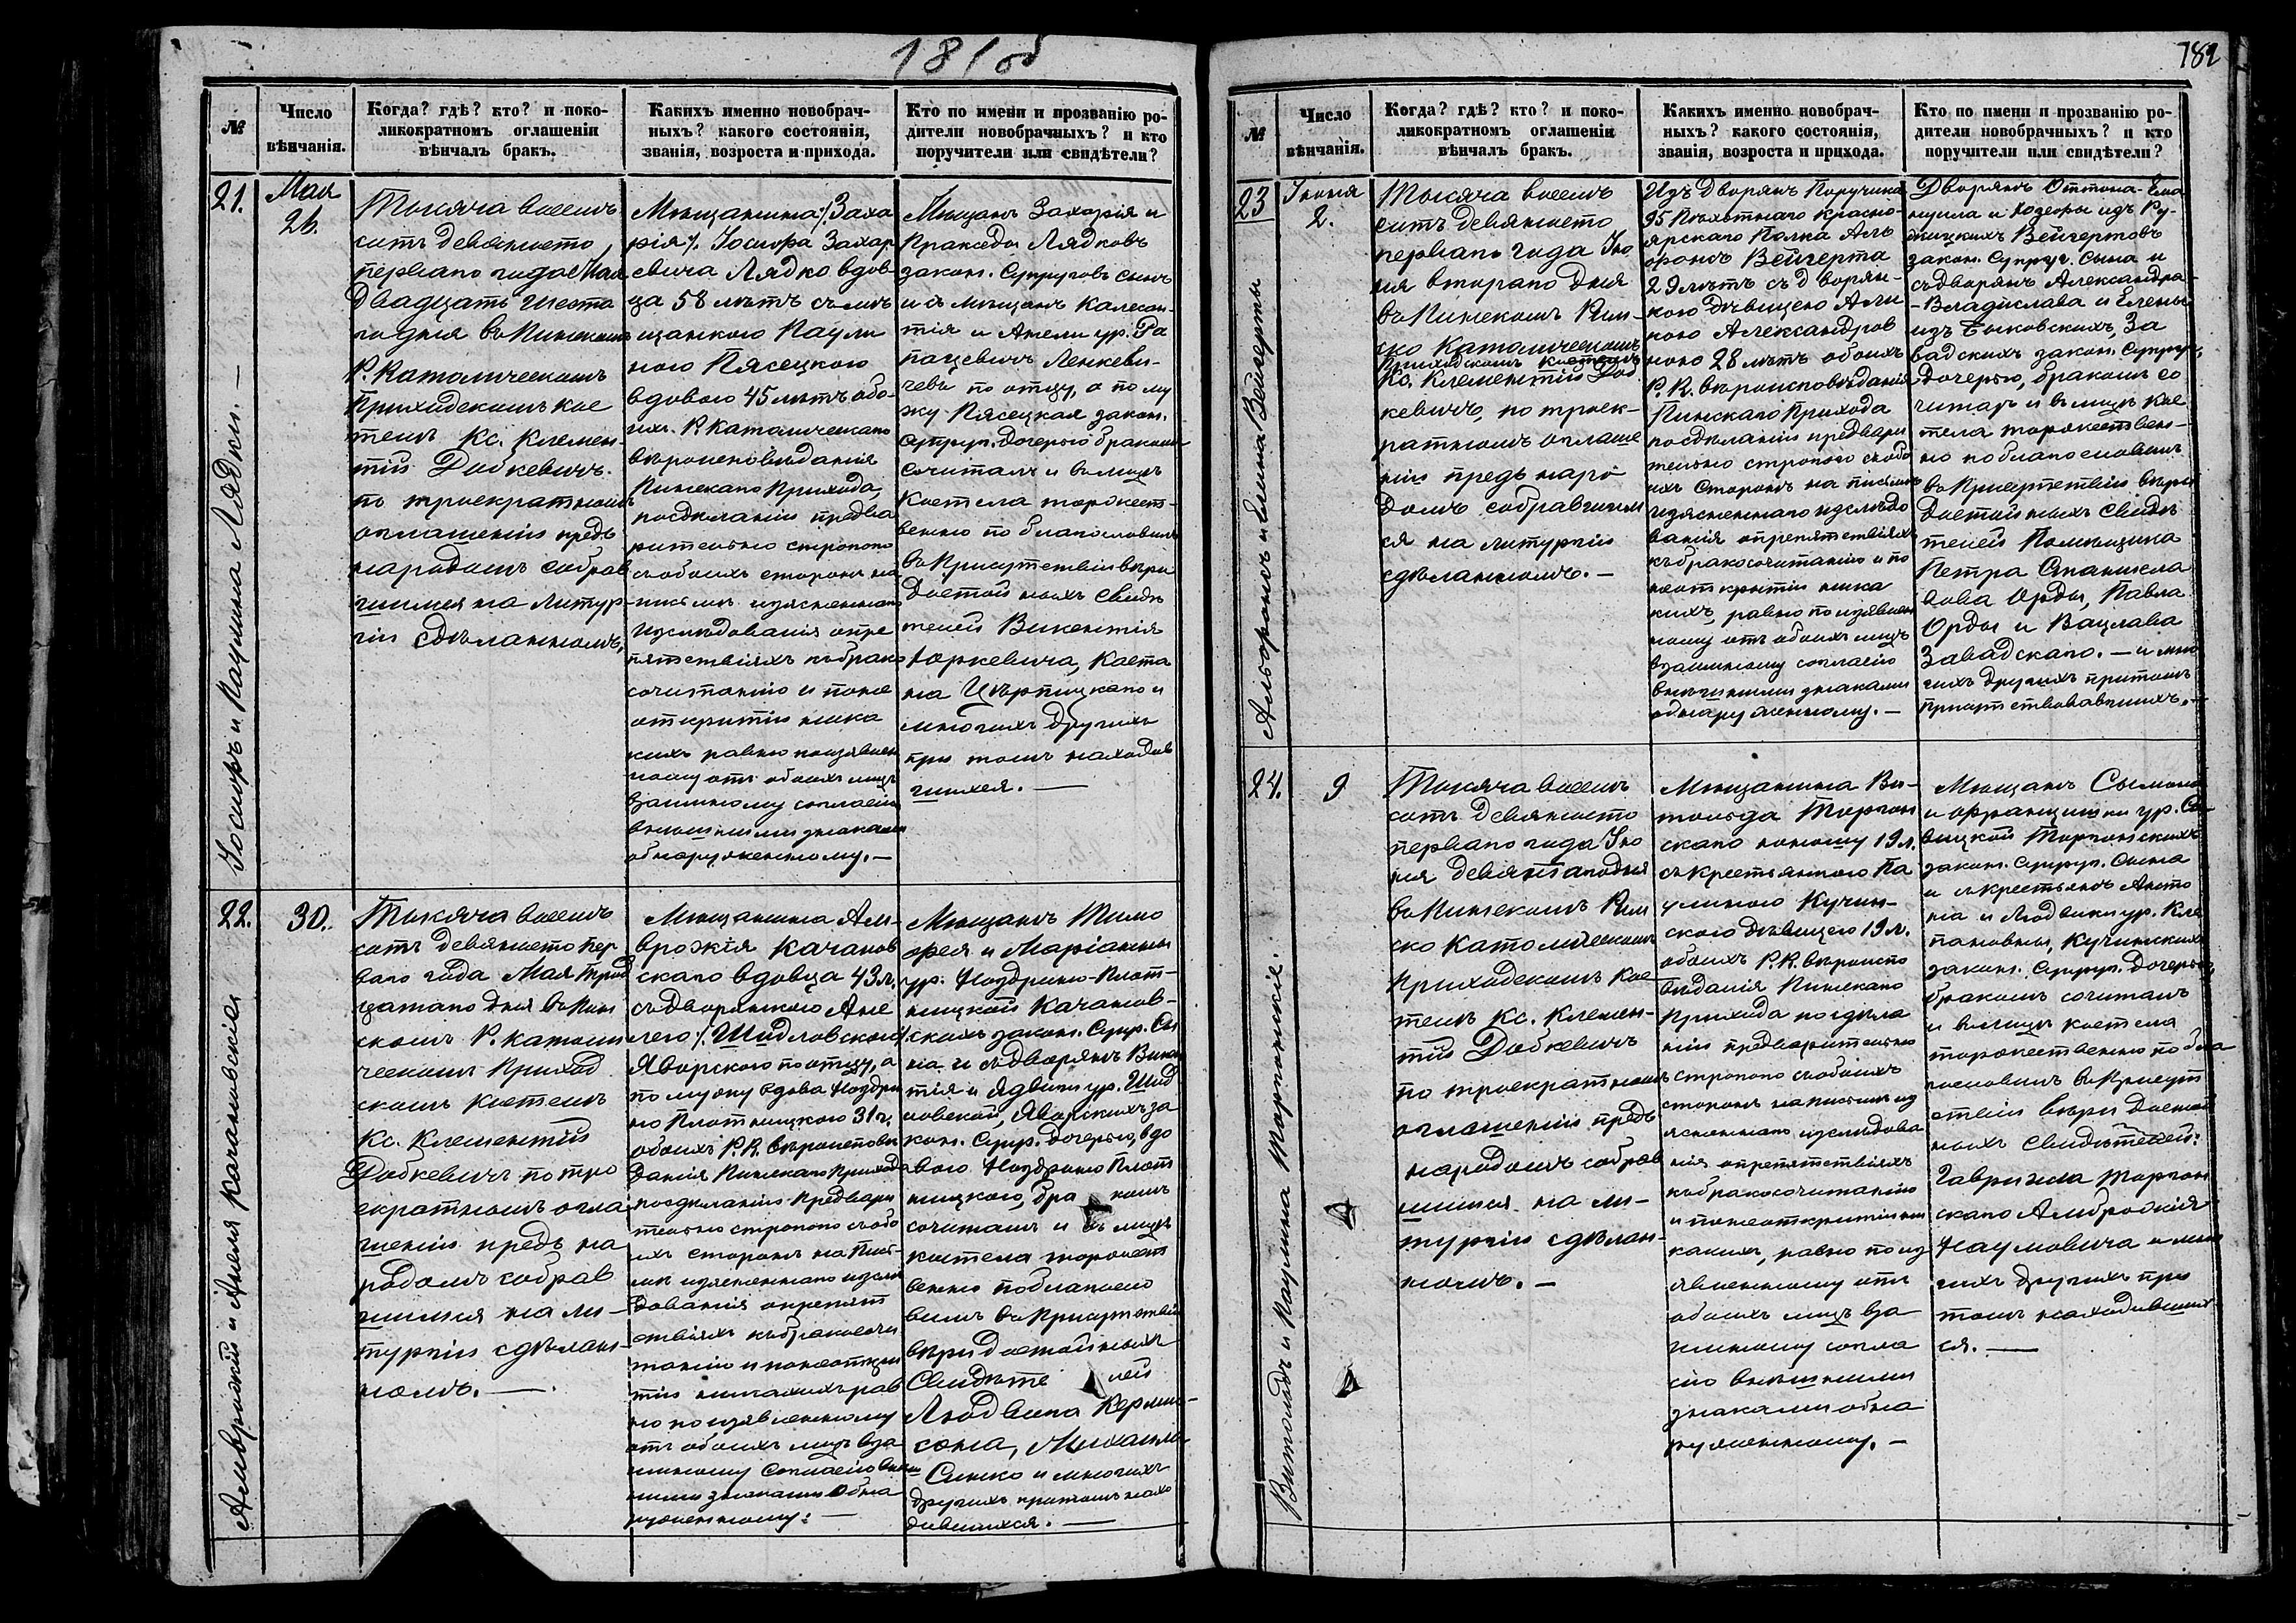 181об
№
Число
вѣнчанія.
Когда? гдѣ? кто? и поко-
ликократномъ оглашеніи
вѣнчалъ бракъ.
Какихъ именно новобрач-
ныхъ? какого состоянія,
званія, возроста и прихода.
Кто по имени и прозванію ро-
дители новобрачныхъ? и кто
поручители или свидѣтели?
21.
Іосифъ и Паулина Лядки.—
Мая
26.
Тысяча восемь
сотъ девяносто
перваго года Мая
двадцать шеста
го дня въ Пинскомъ
Р. Католическомъ
Приходскомъ кос
телѣ Кс. Клемен-
тій Добкевичъ
по троекратномъ
оглашеніи предъ
народомъ собрав
шимся на Литур-
гіи сдѣланномъ,
Мѣщанина /:Заха
рія/. Іосифа Захар
евича Лядко вдов
ца 58 лѣтъ съ мѣ
щанкою Паули
ною Пясецкою
вдовою 45 лѣтъ обо-
ихъ Р. Католическаго
вѣроисповѣданія
Пинскаго Прихода,
посдѣланіи предва
рительно строгого
съ обоихъ сторонъ на
письмѣ изясненнаго
изслѣдованія опре
пятствіяхъ къ брако
сочитанію и поне
открытіи ника
кихъ равно поизявлен
ному отъ обоихъ лицъ
взаимному согласію
внѣшними знаками
обнаруженному.—
Мѣщанъ Захарія и
Пракседы Лядковъ
закон. Супруговъ сына
и съ мѣщанъ Каласан-
тія и Анели ур. Га
пацевичъ Ленкеви-
чевъ по отцу, а по му
жу Пясецкая закон.
супруг. дочерью бракомъ
сочиталъ и въ лицѣ
Костела торжест-
венно по благословилъ
въ Присутствіи вѣри
достойныхъ свидѣ
телей Викентія
Юркевича, Каета
на Цѣрпицкаго и
многихъ другихъ
при томъ находив
шихся.—
22.
Амвросій и Анеля Качановскіе
30.
Тысяча восемь
сотъ девяносто пер
ваго года Мая трид
цатаго дня въ Пин
скомъ Р. католи
ческомъ Приход
скомъ Костелѣ
Кс. Клементій
Добкевичъ по тро
екратномъ огла
шеніи предъ на
родомъ собрав
шимся на ли-
тургіи сдѣлан-
номъ.—
Мѣщанина Ам-
врожія Качанов
скаго вдовца 43 л.
съ дворянкою Ане
лею /:Шидловскою/
Яворскою по отцу, а
по мужу вдова Ноздри
но Плотницкою 31 г.
обоихъ Р.К. вѣроисповѣ
данія Пинскаго Прихода
посдѣланіи Предвари
тельно строгого съ обо
ихъ сторонъ на Пись-
мѣ изясненнаго изслѣ
дованія опрепят
ствіяхъ къ бракосочи
танію и понеоткры
тіи никакихъ рав
но по изявленному
отъ обоихъ лицъ вза
имному согласію внѣш
ними знаками обна
руженному:—
Мѣщанъ Тимо
фея и Маріанны
ур. Ноздрино-Плот-
ницкой Качанов-
скихъ закон. Супр. Сы
на и съ дворянъ Викен
тія и Ядвиги ур. Шид
ловской, Яворскихъ за
кон. Супр. дочерью, вдо
вою Ноздрино Плот
ницкою, бра комъ
сочиталъ и въ лицѣ
костела торжест
венно поблагосло
вилъ въ Присутствіи
вѣридостойныхъ
Свидѣте лей
Людвига Керми-
сона, Михаила
Синко и многихъ
другихъ притомъ нахо
дившихся.—
182
№
Число
вѣнчанія.
Когда? гдѣ? кто? и поко-
ликократномъ оглашеніи
вѣнчалъ бракъ.
Какихъ именно новобрач-
ныхъ? какого состоянія,
званія, возроста и прихода.
Кто по имени и прозванію ро-
дители новобрачныхъ? и кто
поручители или свидѣтели?
23
Альфонсъ и Елена Вейгерты
Іюня
2.
Тысяча восемь
сотъ девяносто
перваго года Iю
ня втораго дня
въ Пинскомъ Рим-
ско Католическомъ
Приходскомъ костелѣ
Кс. Клементій Доб
кевичъ, по троек-
ратномъ оглаше
ніи предъ наро
домъ собравшим
ся на литургіи
сдѣланномъ.—
Изъ Дворянъ Поручика
95 Пѣхотнаго Красно-
ярскаго Полка Аль
фонса Вейгерта
29 лѣтъ съ дворян-
кою дѣвицею
Александров
ною 28 лѣтъ обоихъ
Р.К. вѣроисповѣданія
Пинскаго Прихода
посдѣланіи предвари
тельно строгого съ обо
ихъ сторонъ на письмѣ
изясненнаго изслѣдо
ванія опрепятствіяхъ
къ бракосочитанію и по
неоткрытіи ника
кихъ, равно по изявлен
ному отъ обоихъ лицъ
взаимному согласію
внѣшними знаками
обнаруженному.—
Дворянъ Оттона-Ема
нуила и Юзефы изъ Ру-
дницкихъ Вейгертовъ
закон. Супруг. Сына и
съ дворянъ Александра-
-Владислава и Елены
изъ Быковскихъ, За
вадскихъ закон. Супруг.
дочерью, бракомъ со
читалъ и въ лицѣ Кос
тела торжествен-
но поблагословилъ
въ Присутствіи вѣри
достойныхъ свидѣ
телей Помѣщика
Петра Станисла
вова Орды, Павла
Орды и Вацлава
Завадскаго.—и мно
гихъ другихъ притомъ
присутствовавшихъ.—
24.
Витольдъ и Паулина Торгонскіе.
9
Тысяча восемь
сотъ девяносто
перваго года Iю
ня девятаго дня
въ Пинскомъ Рим
ско Католическомъ
Приходскомъ Кос
телѣ Кс. Клемен-
тій Добкевичъ
по троекратномъ
оглашеніи предъ
народомъ собрав
шимся на ли-
тургіи сдѣлан-
номъ.—
Мѣщанина Ви-
тольда Торгон
скаго юношу 19 л.
съ крестьянкою Па
улиною Кучин-
скою дѣвицею 19 л.
обоихъ Р.К. вѣроиспо
вѣданія Пинскаго
Прихода посдѣла
ніи предварительно
строгого съ обоихъ
сторонъ на письмѣ из
ясненнаго изслѣдова
нія опрепятствіяхъ
къ бракосочитанію
и понеоткрытіи ни
какихъ, равно по из
явленному отъ
обоихъ лицъ вза
имному согла
сію внѣшними
знаками обна
руженному.—
Мѣщанъ Сымона
и Францишки ур. Са
вицкой Торгонскихъ
закон. Супруг. Сына
и съ крестьянъ Анто
на и Людвики ур. Кле
пановны, Кучинскихъ
закон. Супруг. дочерью,
бракомъ сочиталъ
и въ лицѣ костела
торжественно по бла
гословилъ въ Присут
ствіи вѣри достой
ныхъ свидѣтелей:
Гавріила Торгон
скаго Амброжія
Наумовича и мно
гихъ другихъ при
томъ находивших
ся.—